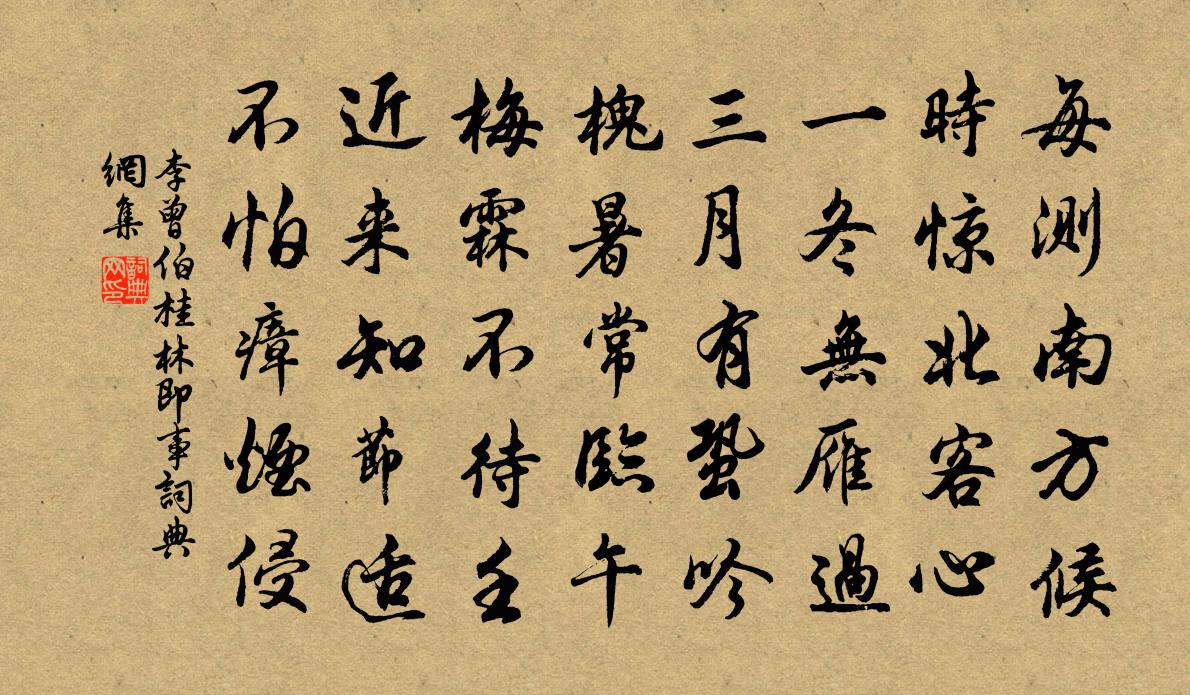 每測南方候
時惊北客心
一冬無雁過
三月有蛩吟
槐暑常臨午
梅霖不待壬
近来知節适
不怕瘴煙侵
李曾伯桂林即事詞典
網集
詞典
网印